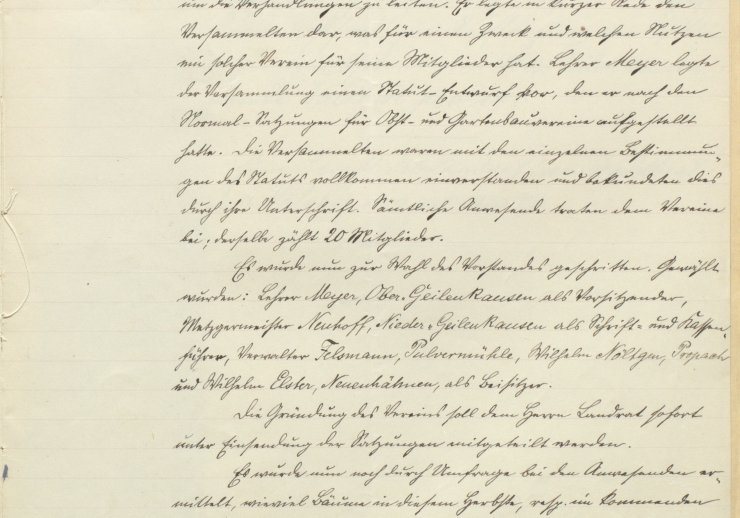 um die Verhandlungen zu leiten. Er legte in kurzer Rede den
Versammelten dar, was für einen Zweck und welchen Nutzen
ein solcher Verein für seine Mitglieder hat. Lehrer Meyer legte
der Versammlung einen Statut-Entwurf vor, den er nach den
Normal-Satzungen für Obst- und Gartenbauvereine aufgestellt
hatte. Die Versammelten waren mit den einzelnen Bestimmun-
gen des Statuts vollkommen einverstanden und bekundeten dies
durch ihre Unterschrift. Sämtliche Anwesende traten dem Vereine
bei; derselbe zählt 20 Mitglieder.
Es wurde nun zur Wahl des Vorstandes geschritten. Gewählt
wurden: Lehrer Meyer, Ober-Geilenkausen als Vorsitzender,
Metzgermeister Neuhoff, Nieder-Geilenkausen als Schrift- und Kassen-
führer, Verwalter Felsmann, Pulvermühle, Wilhelm Nöltgen,
und Wilhelm Elster, Neuenhähnen, als Beisitzer.
Die Gründung des Vereins soll dem Herrn Landrat sofort
unter Einsendung der Satzungen mitgeteilt werden.
Es wurde nun noch durch Umfrage bei den Anwesenden er-
mittelt, wieviel Bäume in diesem Herbste, resp. im kommenden